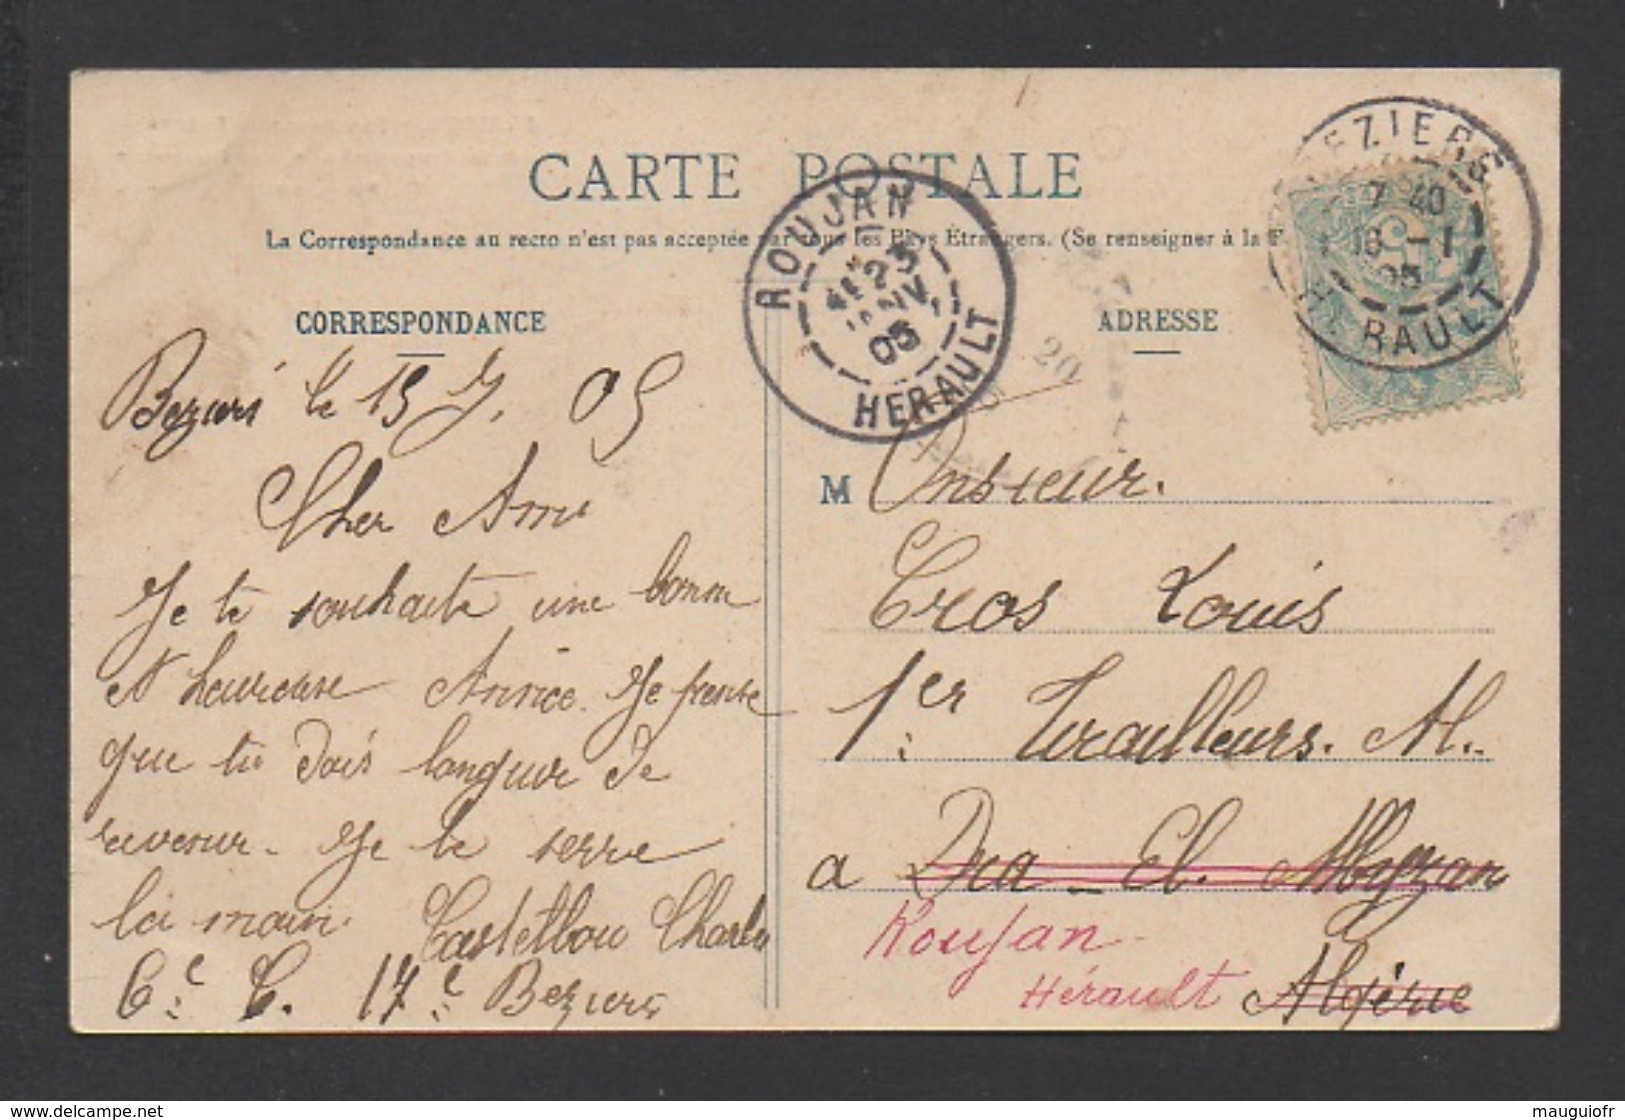 CARTE POSTALE
La Correspondance au recto n'est pas acceptée par tous les Pays Étrangers. (Se renseigner à la
CORRESPONDANCE
ADRESSE
BEZIERS
7 40
16 -1
05
HERAULT
ROUJAN
23
JANV.
05
HERAULT
20
Beziers le 15 J. 05
Cher Ami
Je te souhaite une bonne
et heureuse Année. Je pense
que tu dois languir de
revenir. Je te serre
la main. Castelbou Charles
Cie C. 17e Beziers
M Onsieur.
Cros Louis
1er Tirailleurs. A.
a Dra-El. Myzan
Roujan
Hérault Algérie
delcampe.net
mauguiofr